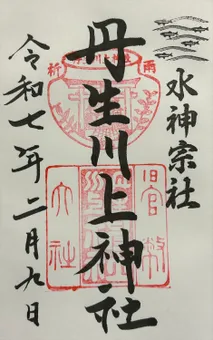 水神宗社
丹生川上神社
令和七年二月九日
祈雨
旧官幣
大社